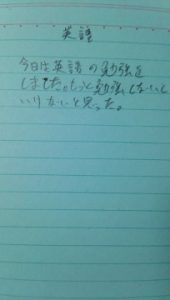 英語
今日は英語の勉強を
しました。もっと勉強しないと
いけないと思った。